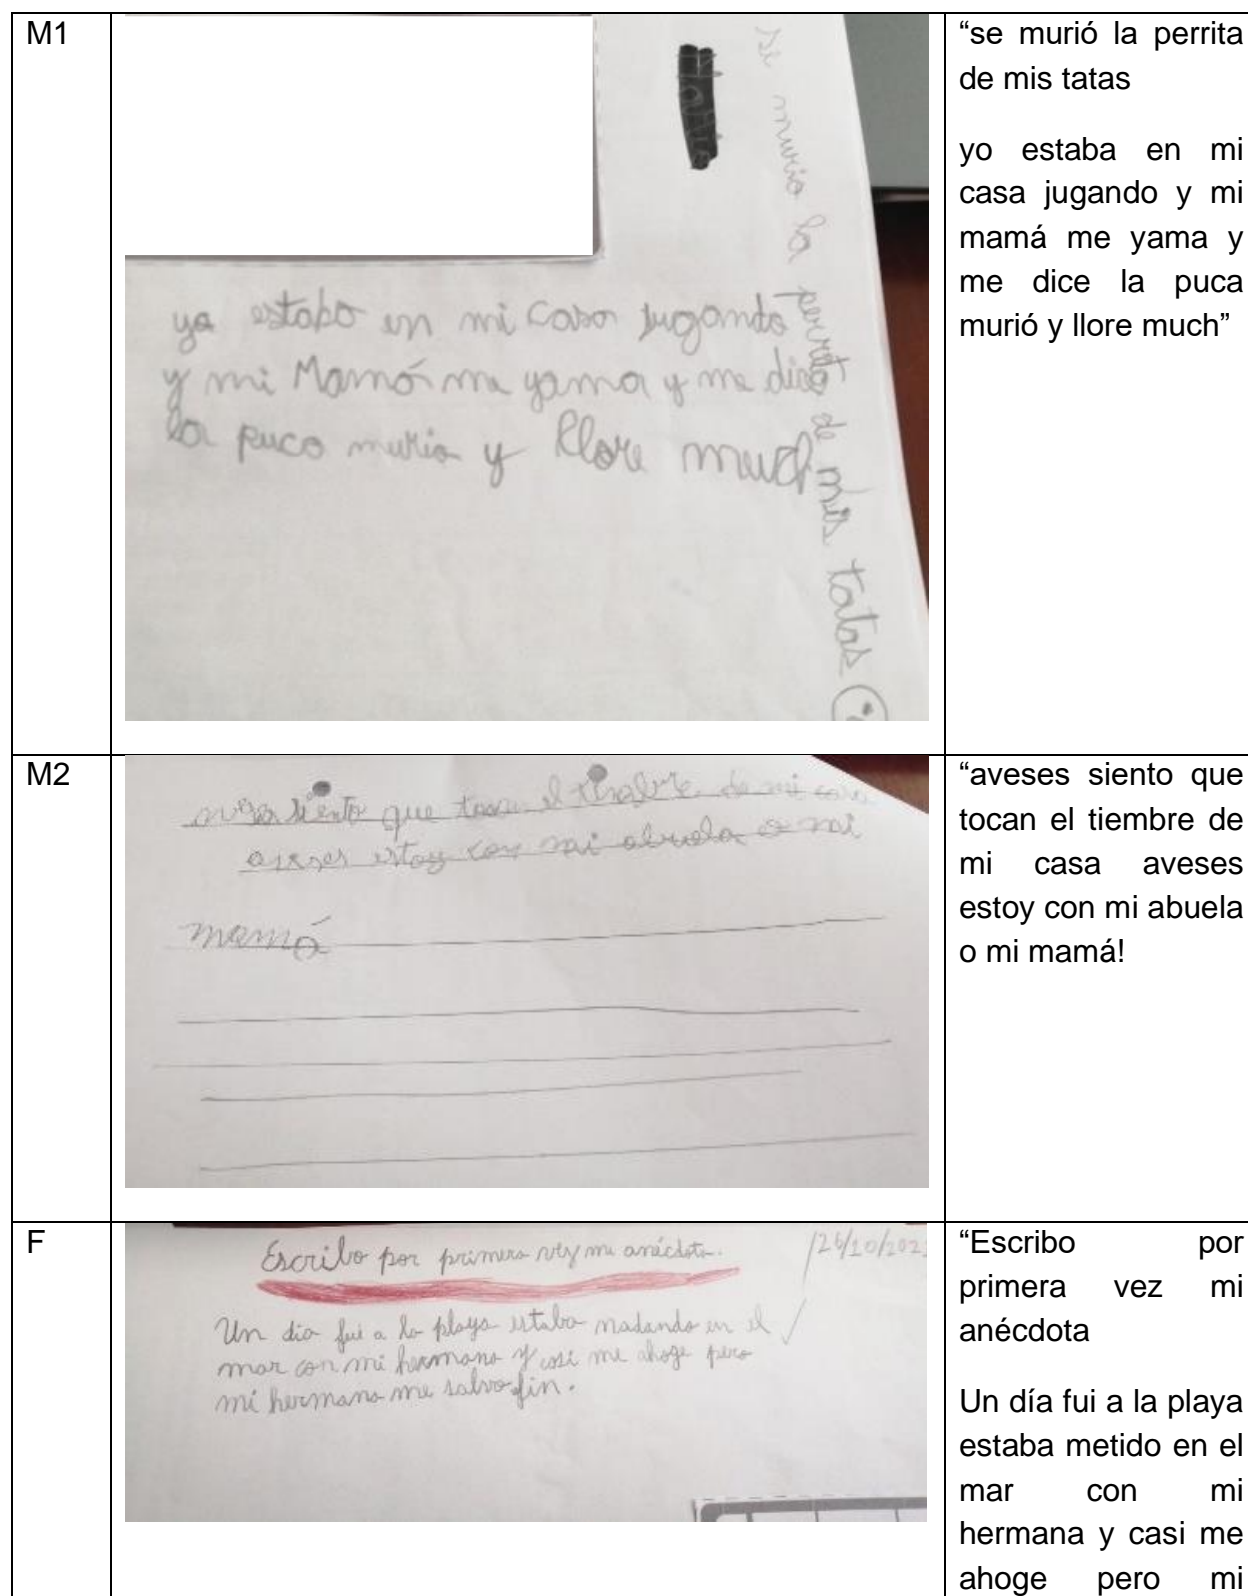 M1
se murio la perrita de mis tatas
yo estaba en mi casa jugando
y mi Mamá me yama y me dice
la puca murio y llore much
“se murió la perrita
de mis tatas
yo estaba en mi
casa jugando y mi
mamá me yama y
me dice la puca
murió y llore much”
M2
siento que tocan el de mi casa
aveses estoy con mi abuela o mi
mamá
“aveses siento que
tocan el tiembre de
mi casa aveses
estoy con mi abuela
o mi mamá!
F
Escribo por primera vez mi anécdota.
/26/10/202
Un dia fui a la playa estaba nadando en el
mar con mi hermana y casi me ahoge pero
mi hermana me salvo fin.
“Escribo por
primera vez mi
anécdota
Un día fui a la playa
estaba metido en el
mar con mi
hermana y casi me
ahoge pero mi